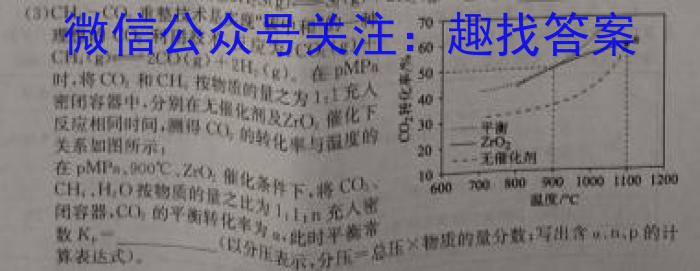 (3)CH CO 重整技术是
微信公众号关注：趣找答案
CH₄(g) 2CO(g)+2H₂(g)。在 pMPa
时,将CO₂ 和CH₄ 按物质的量之为 1:1 充入
密闭容器中,分别在无催化剂及ZrO₂ 催化下
反应相同时间,测得 CO₂ 的转化率与温度的
关系如图所示:
在 pMPa、900℃、ZrO₂ 催化条件下,将 CO₂、
CH₄、H₂O 按物质的量之比为 1:1:n 充入密
闭容器,CO₂ 的平衡转化率为 α,此时平衡常
数 Kₚ= (以分压表示,分压=总压×物质的量分数;写出含 α、n、p 的计
算表达式)。
CO₂转化率/%
70
60
50
40
30
20
10
平衡
ZrO₂
无催化剂
600 700 800 900 1000 1100 1200
温度/℃